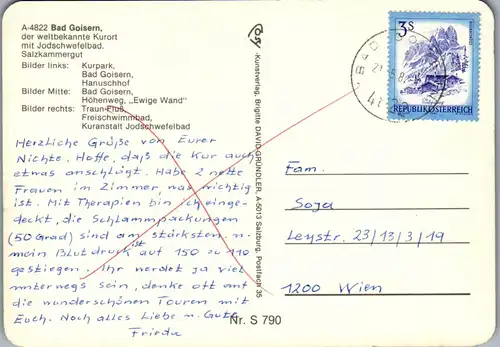 A-4822 Bad Goisern,
der weltbekannte Kurort
mit Jodschwefelbad.
Salzkammergut
Bilder links: Kurpark,
Bad Goisern,
Hanuschhof
Bilder Mitte: Bad Goisern,
Höhenweg, „Ewige Wand"
Bilder rechts: Traun-Fluß,
Freischwimmbad,
Kuranstalt Jodschwefelbad
Herzliche Grüße von Eurer
Nichte. Hoffe, daß die Kur auch
etwas anschlägt. Habe 2 nette
Frauen im Zimmer, was wichtig
ist. Mit Therapien bin ich einge-
deckt, die Schlammpackungen
(50 Grad) sind am stärksten u.
mein Blutdruck ist auf 150 zu 110
gestiegen. Ihr werdet ja viel
unterwegs sein, denke oft an
die wunderschönen Touren mit
Euch. Noch alles Liebe u. Gute
Frieda
Kunstverlag, Brigitte DAVID-GRÜNDLER, A-5013 Salzburg, Postfach 35
Nr. S 790
3S
REPUBLIK ÖSTERREICH
Fam.
Soja
Leystr. 23/13/3/19
1200 Wien